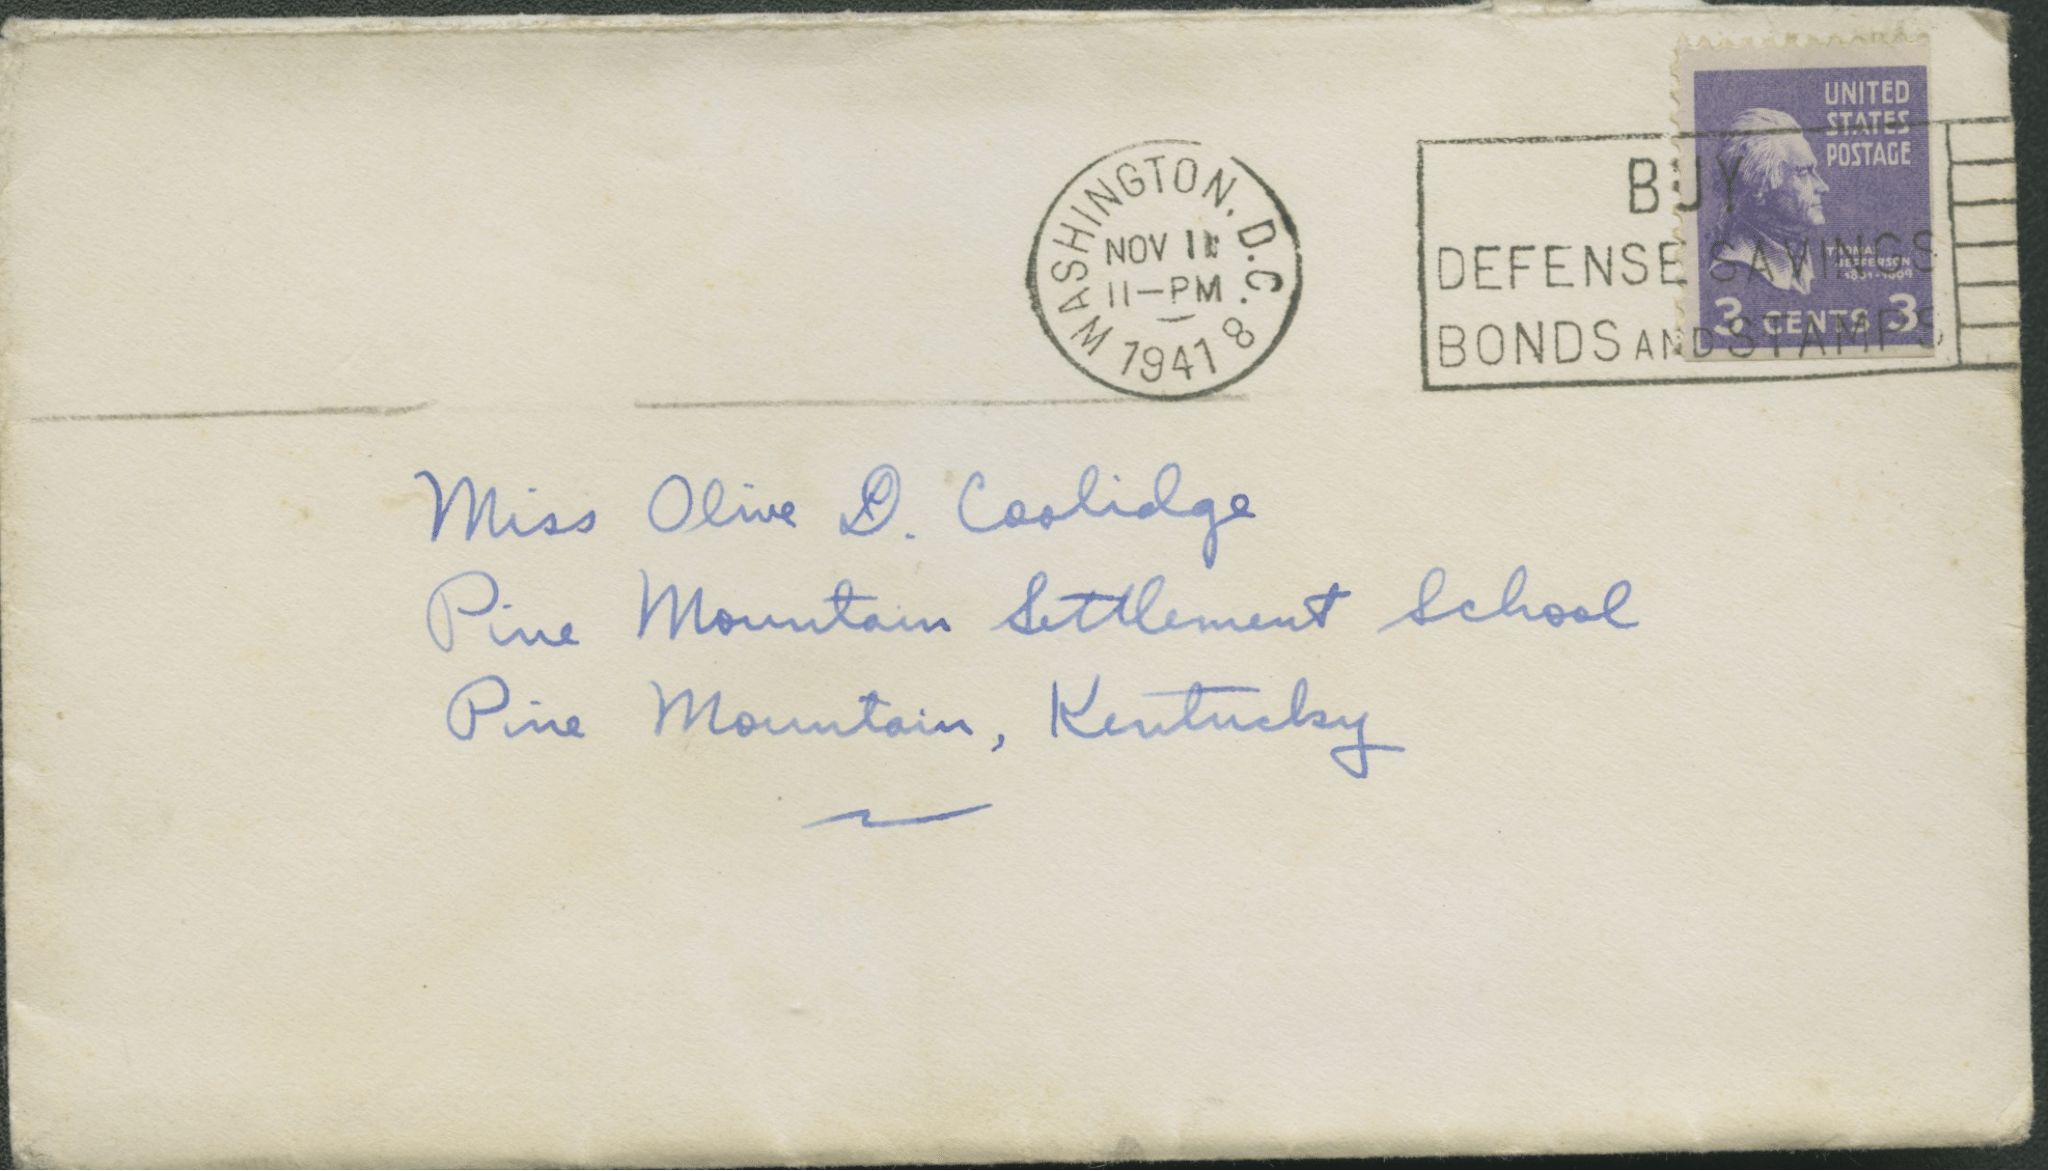 WASHINGTON, D.C. 8
NOV 11
11-PM
1941
BUY
DEFENSE SAVINGS
BONDS AND STAMPS
UNITED
STATES
POSTAGE
THOMAS
JEFFERSON
1801-1809
3 CENTS 3
Miss Olive D. Coolidge
Pine Mountain Settlement School
Pine Mountain, Kentucky